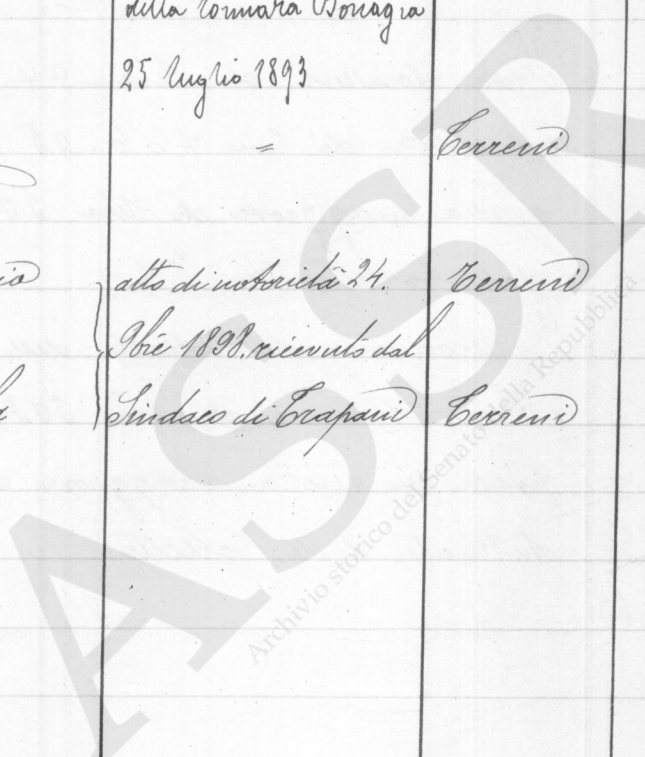 della Tonnara Bonagia
25 luglio 1893
=
Terreni
io
atto di notorietà 24.
Terreni
9bre 1898. ricevuto dal
Sindaco di Trapani
Terreni
ASSR
Archivio storico del Senato della Repubblica